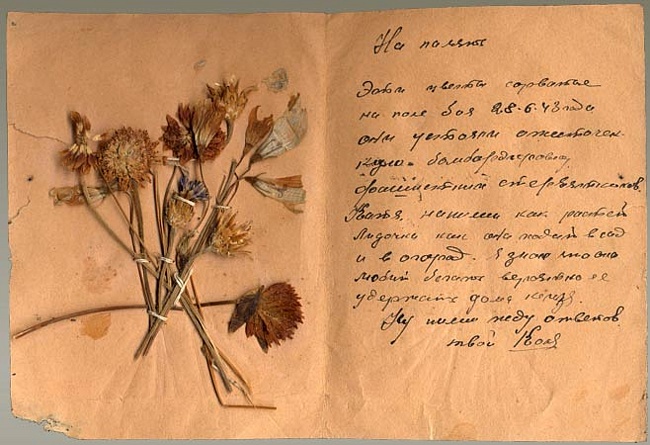 На память
Эти цветы сорватые
на поле боя 28-6-43 года
они устояли ожесточен-
кую бомбардировку
фашистких стервятников.
Катя, напиши как растет
Лидочка как она ходит в сад
и в огород. Я знаю что она
любит бегать вероятно ее
удержать дома нельзя.
Ну пиши жду ответов.
твой Коля